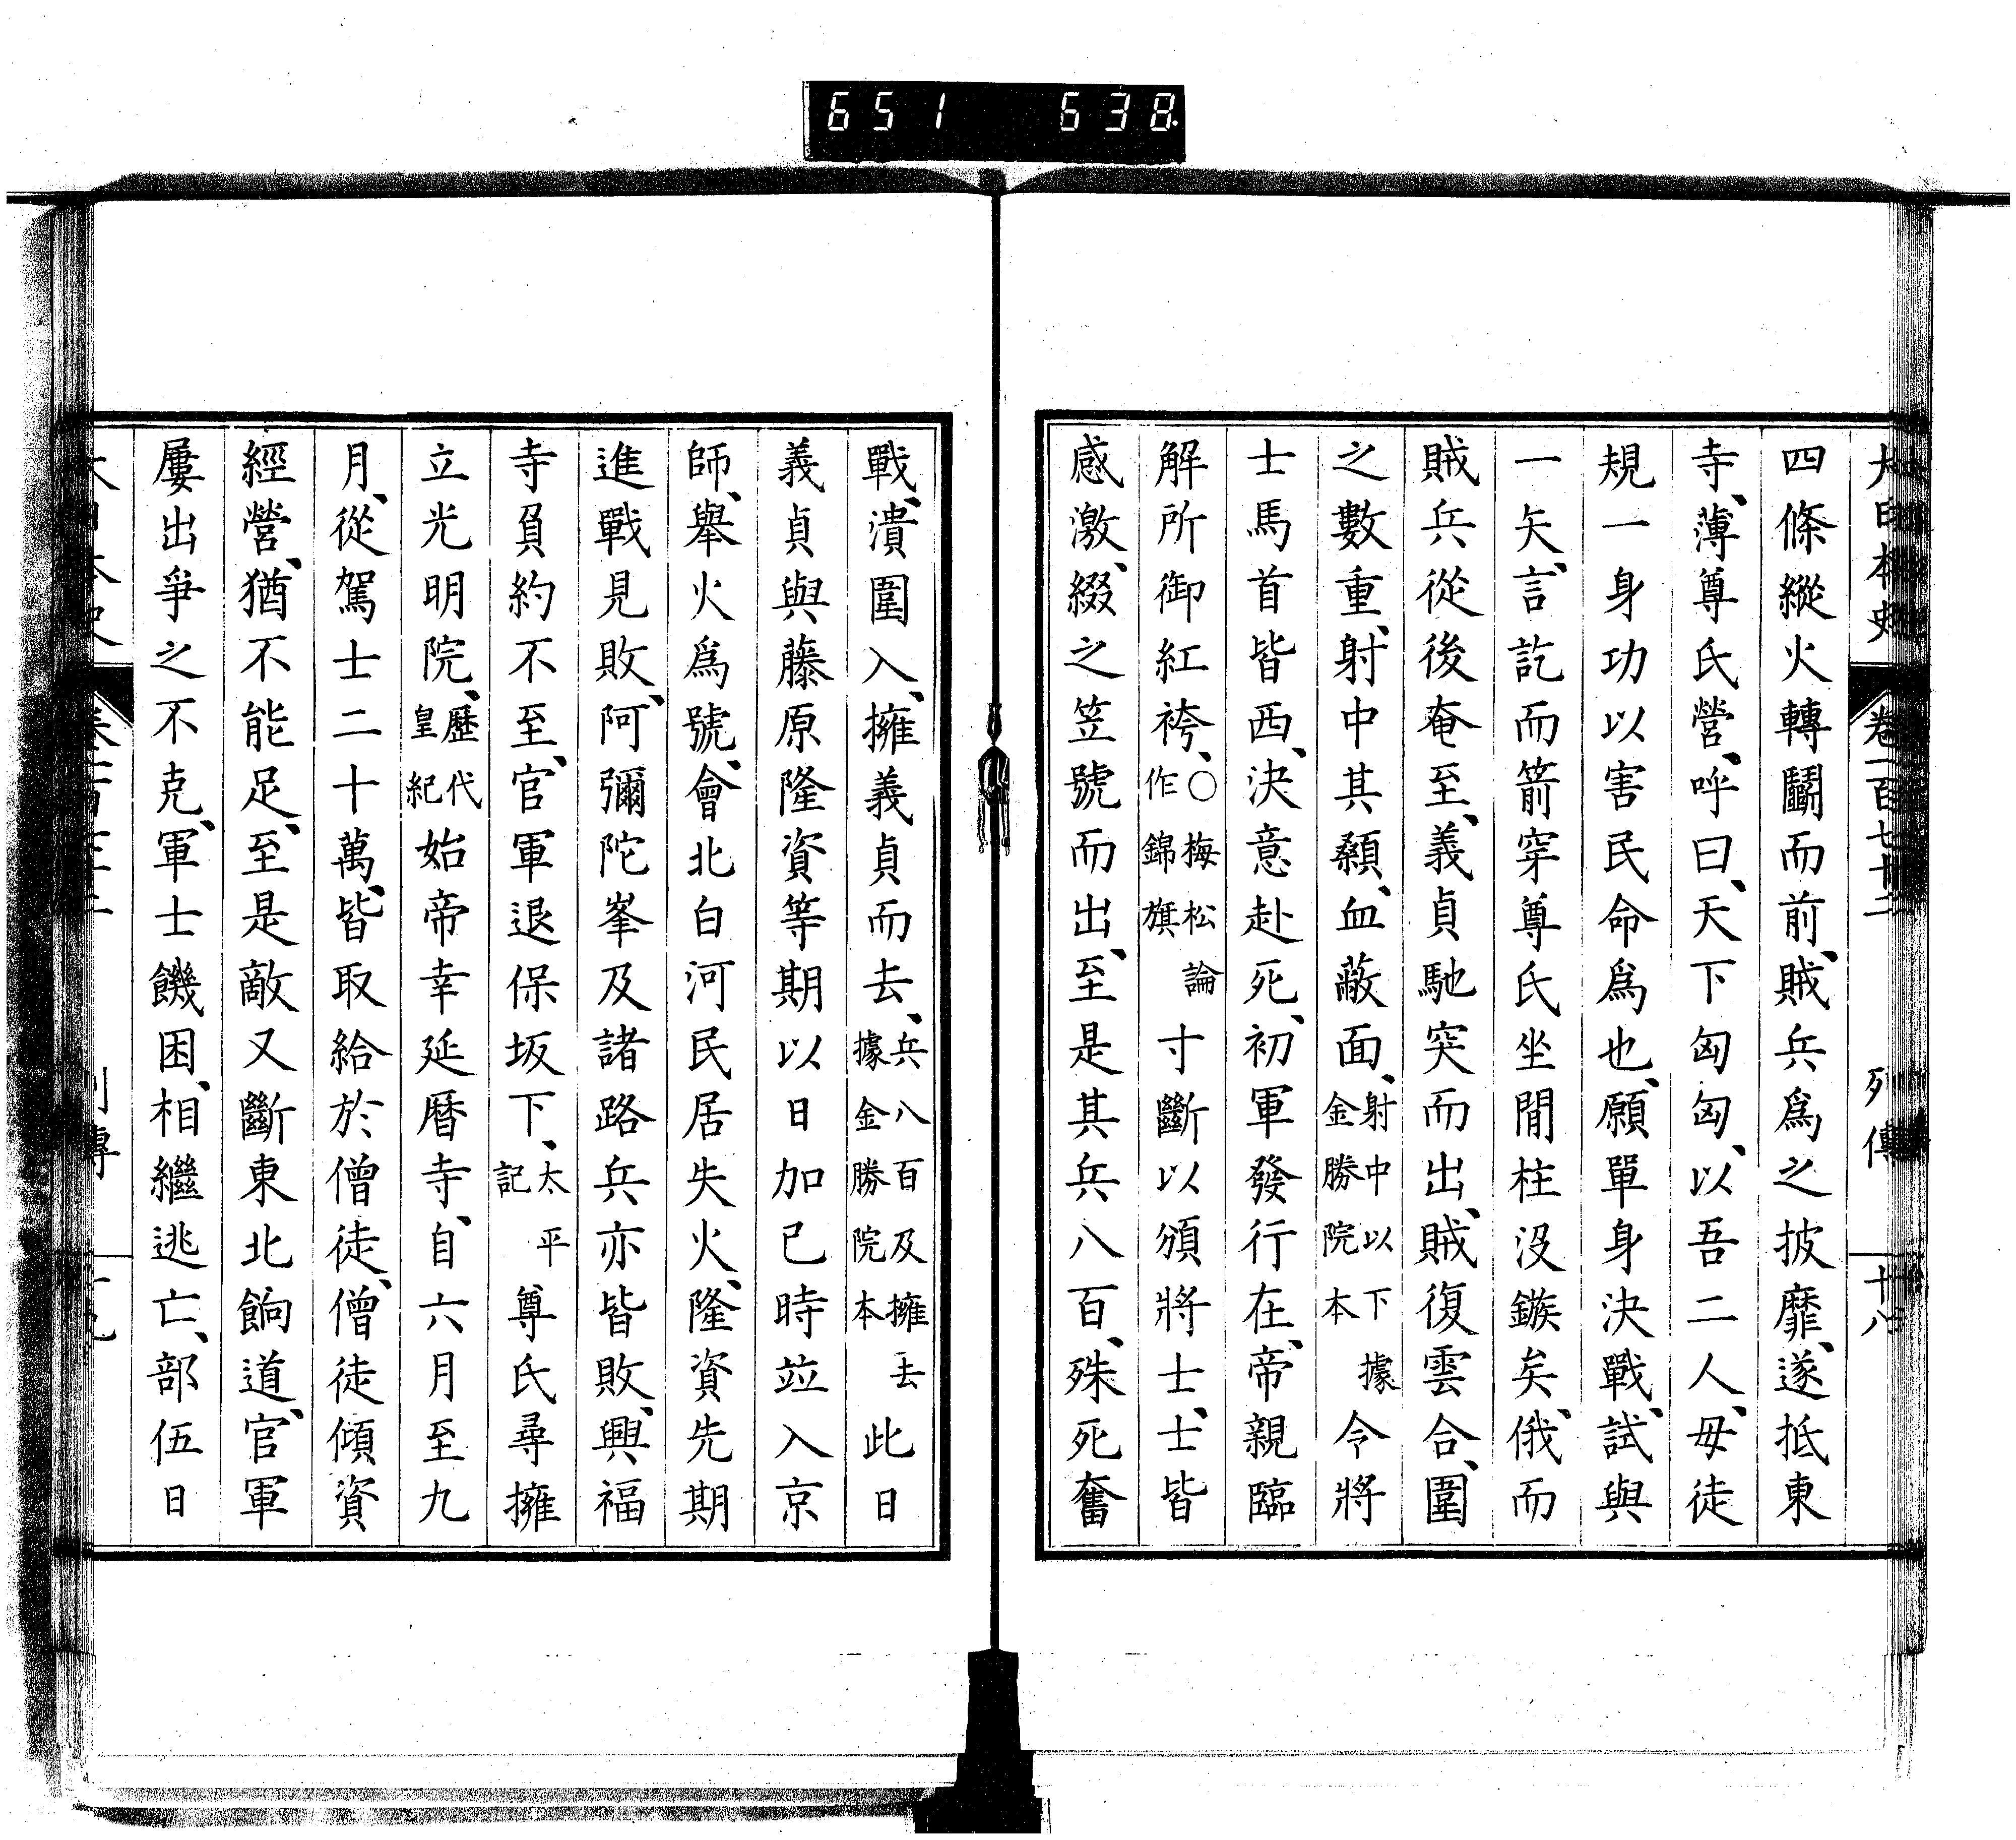 651 638
大日本史 卷一百七十二 列傳 十八
四條縱火轉鬭而前、賊兵爲之披靡、遂抵東
寺、薄尊氏營、呼曰、天下匈匈、以吾二人、毋徒
規一身功以害民命爲也、願單身決戰、試與
一矢、言訖而箭穿尊氏坐閒柱沒鏃矣、俄而
賊兵從後奄至、義貞馳突而出、賊復雲合、圍
之數重、射中其顙、血蔽面、射中以下據金勝院本令將
士馬首皆西、決意赴死、初軍發行在、帝親臨
解所御紅袴、〇梅松論作錦旗寸斷以頒將士、士皆
感激、綴之笠號而出、至是其兵八百、殊死奮
戰、潰圍入、擁義貞而去、兵八百及擁去據金勝院本此日
義貞與藤原隆資等期以日加已時竝入京
師、舉火爲號、會北白河民居失火、隆資先期
進戰見敗、阿彌陀峯及諸路兵亦皆敗、興福
寺負約不至、官軍退保坂下、太平記尊氏尋擁
立光明院、歷代皇紀始帝幸延曆寺、自六月至九
月、從駕士二十萬、皆取給於僧徒、僧徒傾資
經營、猶不能足、至是敵又斷東北餉道、官軍
屢出爭之不克、軍士饑困、相繼逃亡、部伍日